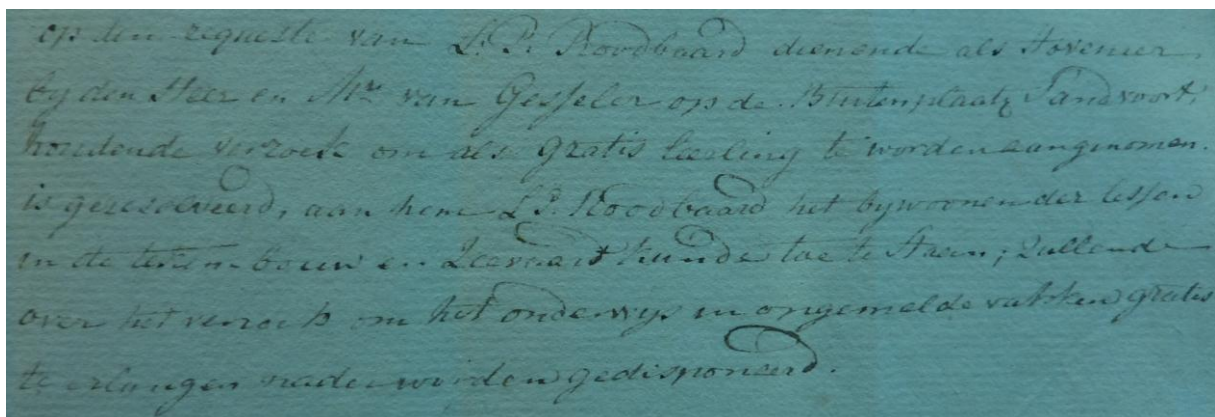 op den requeste van L. P. Roodbaard dienende als Hovenier
by den Heer en Mr van Gesseler op de Buitenplaatz Sandvoort,
houdende verzoek om als gratis leerling te worden aangenomen.
is geresolveerd, aan hem L P. Roodbaard het bywoonen der lessen
in de bouw en kunde toe te staan; zullende
over het verzoek om het onderwys in ongemelde vakken gratis
te erlangen nader worden gedisponeerd.